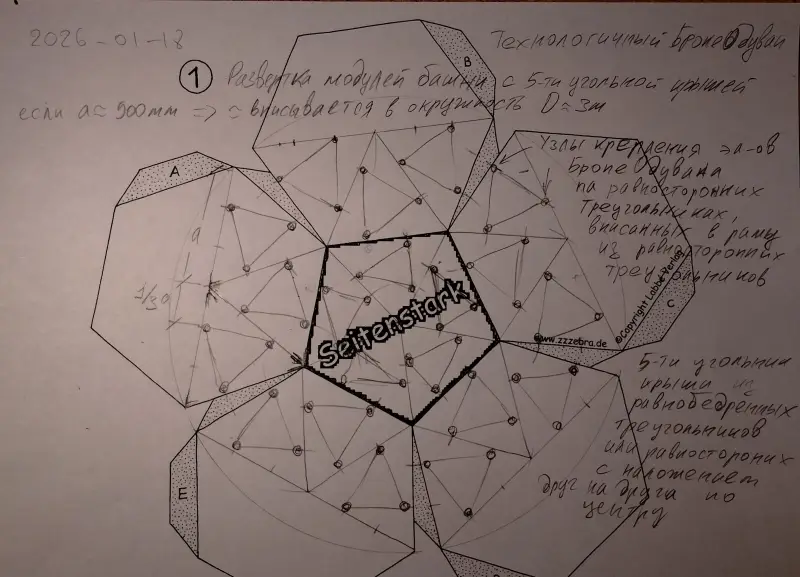 2026-01-18
Технологичный БронеОдуван
1 Развертка модулей башни с 5-ти угольной крышей
если a≈900mm => ≈ вписывается в окружность D≈3m
B
A
Узлы крепления эл-ов
БронеОдувана
на равносторонних
треугольниках,
вписанных в раму
из равносторонних
треугольников
a
1/3a
Seitenstark
www.zzzebra.de
©Copyright Labbé Verlag
C
5-ти угольник
крыши из
равнобедренных
треугольников
или равносторонних
с наложением
друг на друга по
центру
E